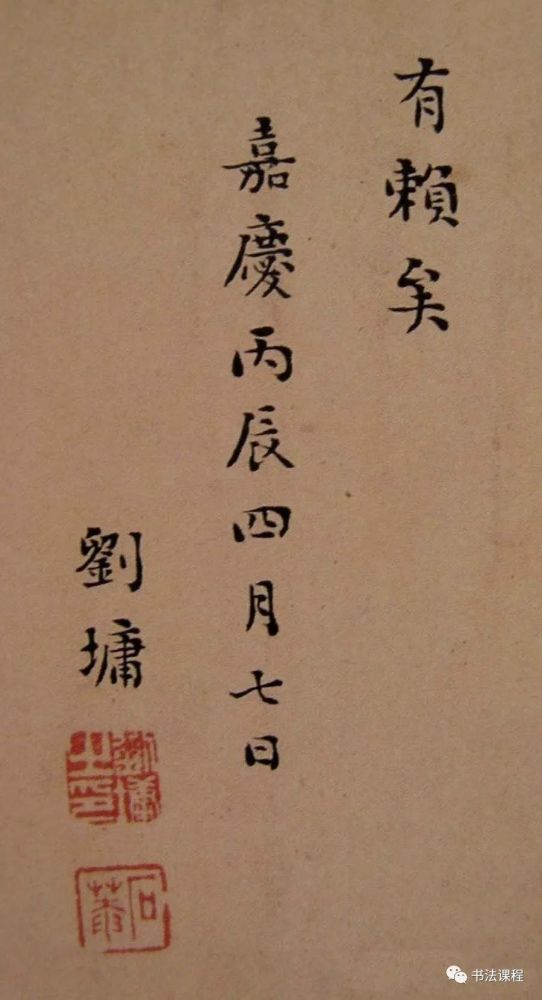 有賴矣
嘉慶丙辰四月七日
劉墉
劉墉之印
石菴
书法课程